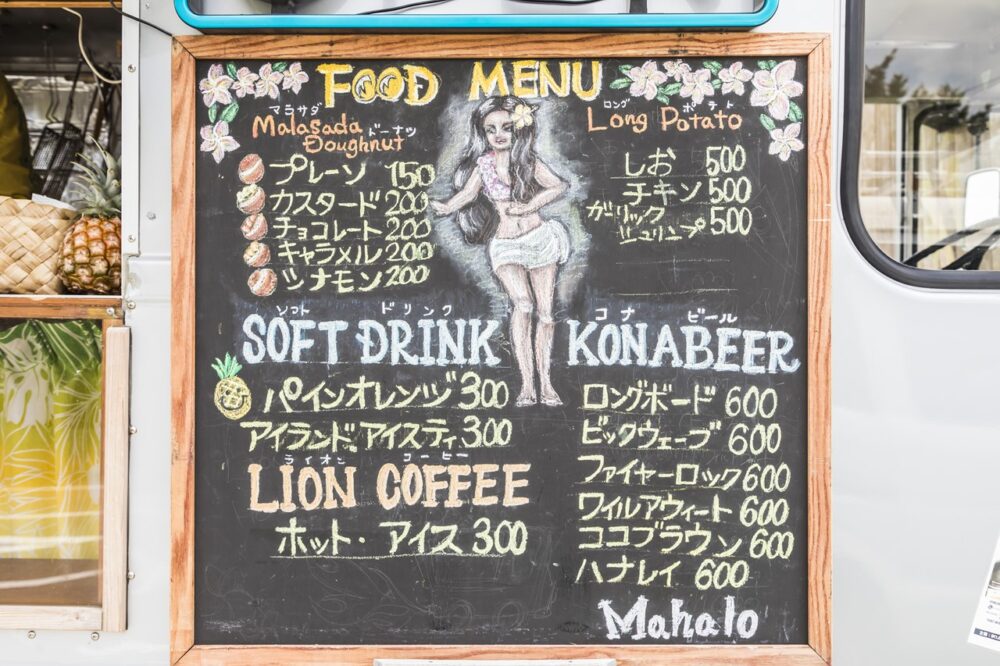 FOOD MENU
マラサダ
Malasada ドーナツ
Doughnut
プレーン 150
カスタード 200
チョコレート 200
キャラメル 200
シナモン 200
ロング ポテト
Long Potato
しお 500
チキン 500
ガーリック
シュリンプ 500
ソフト ドリンク
SOFT DRINK
パインオレンジ 300
アイランドアイスティ 300
ライオン コーヒー
LION COFFEE
ホット・アイス 300
コナ ビール
KONABEER
ロングボード 600
ビックウェーブ 600
ファイヤーロック 600
ワイルアウィート 600
ココブラウン 600
ハナレイ 600
Mahalo